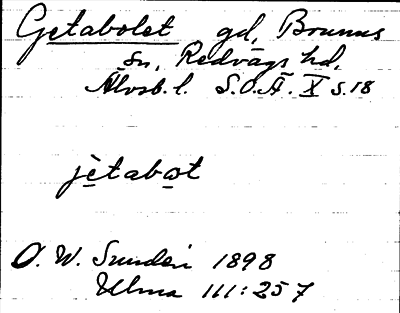 Getabolet gd, Brunns
sn, Redvägs hd,
Älvsb. l. S.O.Ä. X s. 18
jètabot
O. W. Sundén 1898
Ulma 111:257